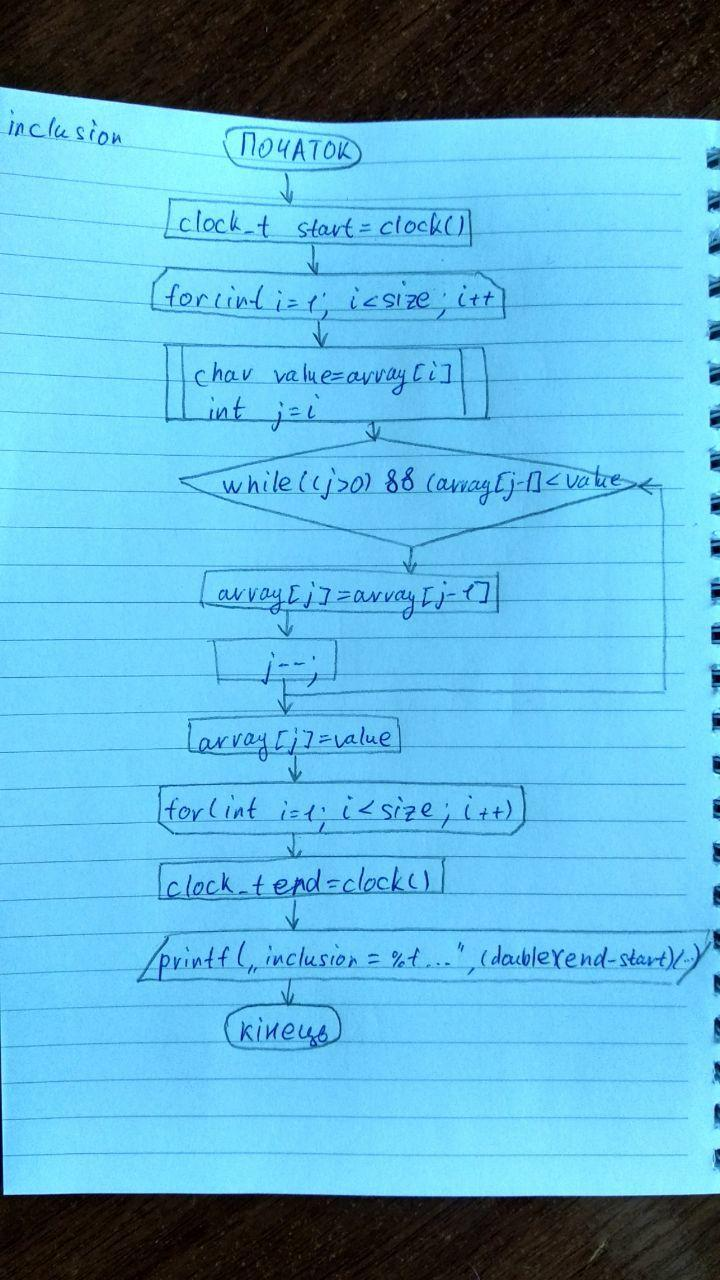 inclusion
ПОЧАТОК
clock_t start=clock()
for(int i=1; i<size; i++
char value=array[i]
int j=i
while((j>0) && (array[j-1]<value
array[j]=array[j-1]
j--;
array[j]=value
for(int i=1; i<size; i++)
clock_t end=clock()
printf(„inclusion = %f...", (double)(end-start)(...)
кінець